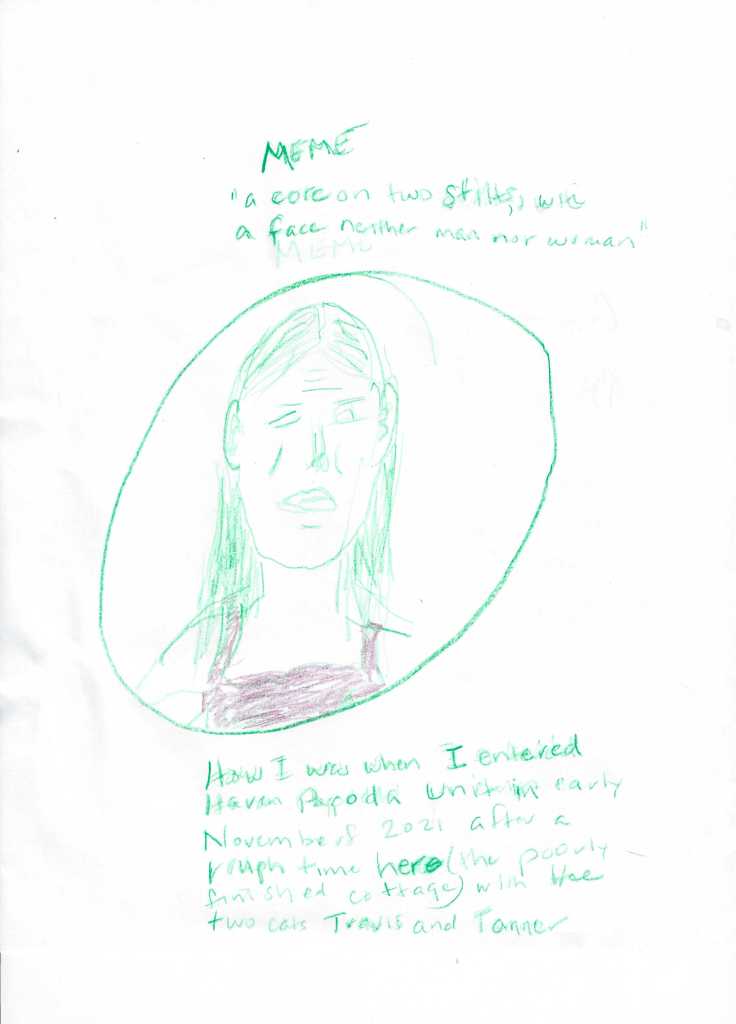 MEME
"a core on two stilts, with
a face neither man nor woman"
MEME
How I was when I entered
Haven Unit in early
November of 2021 after a
rough time here (the poorly
finished cottage) with the
two cats Travis and Tanner